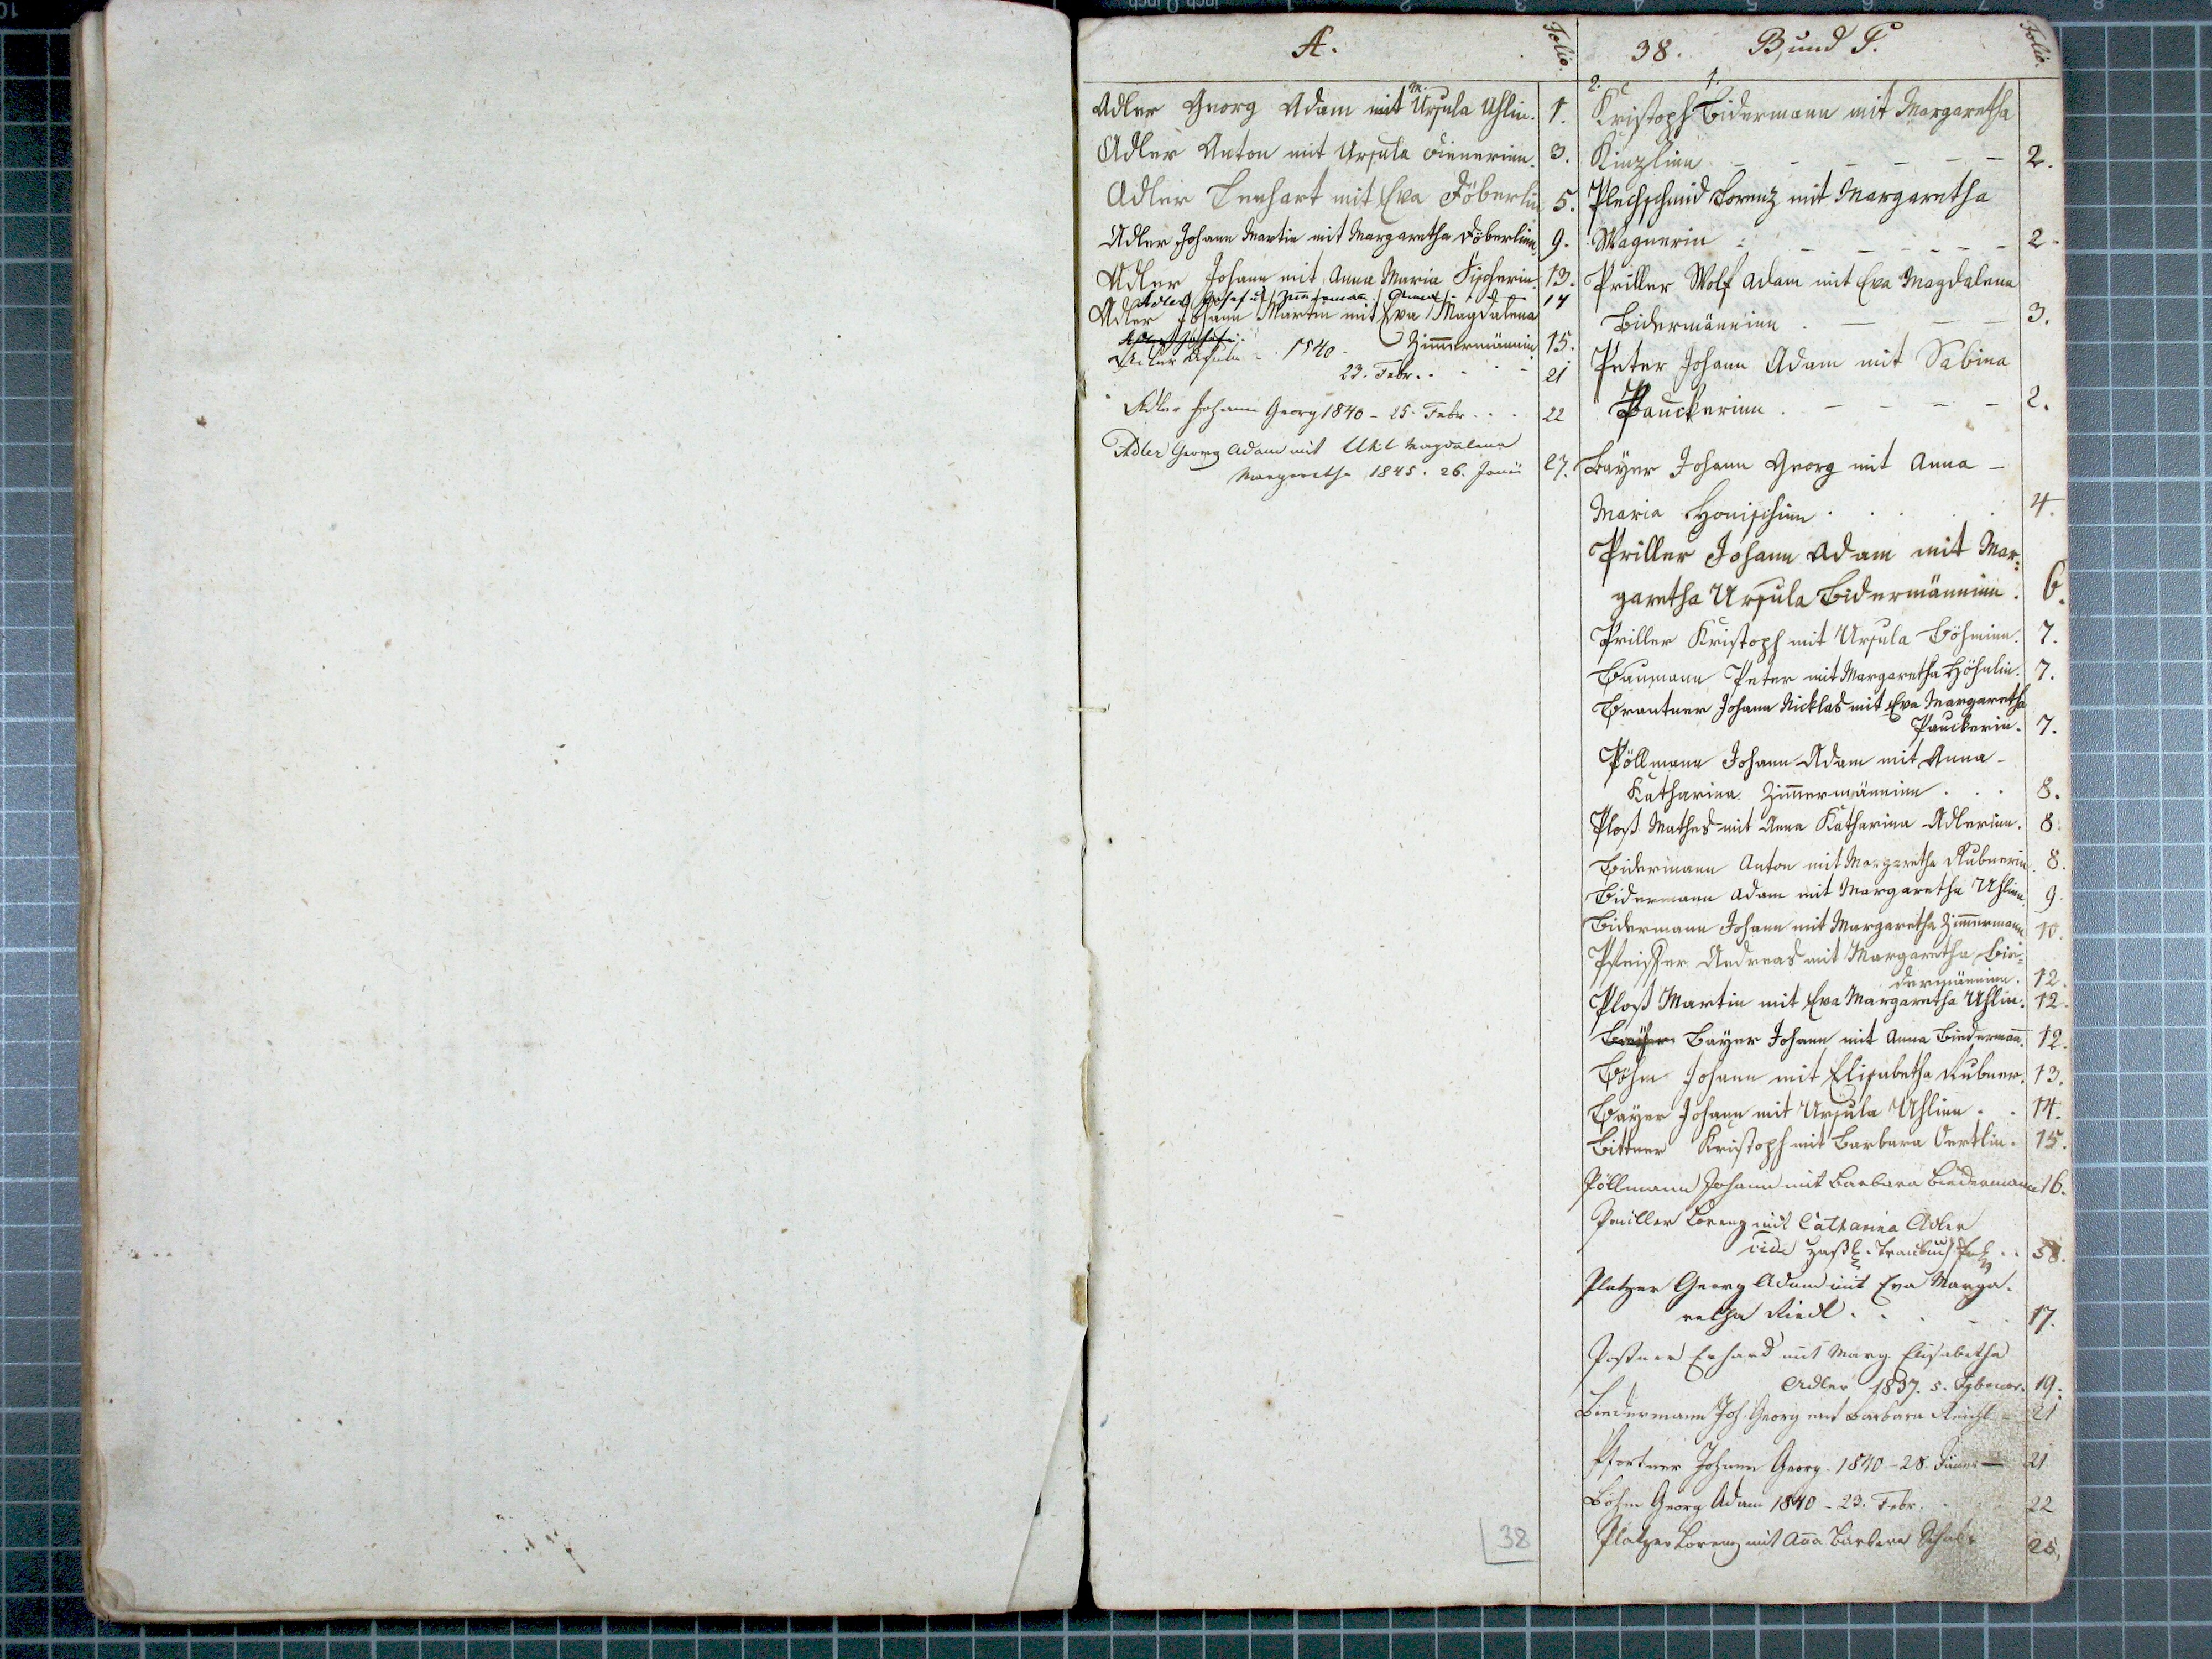 A.
Folio.
Adler Georg Adam mit M. Ursula Uhlin. 1.
Adler Anton mit Ursula Dienerinn. 3.
Adler Lenhart mit Eva Döberlin 5.
Adler Johann Martin mit Margaretha Döberlinn 9.
Adler Johann mit Anna Maria Fischerin. 13.
Adler Josef u. Zimmermann 14
Adler Johann Martin mit Eva Magdalena
Zimmermännin 15.
Adler 1840
23. Febr. 21
Adler Johann Georg 1840 - 25. Febr. 22
Adler Georg Adam mit Uhl Magdalena
Margaretha 1845. 26. Juni 27.
38. B und P.
Folio.
2. 1.
Kristoph Bidermann mit Margaretha
Kinzlinn 2.
Plechschmid Lorenz mit Margaretha
Wagnerin 2.
Priller Wolf Adam mit Eva Magdalena
Bidermänninn 3.
Peter Johann Adam mit Sabina
Pauckerinn 2.
Bayer Johann Georg mit Anna
Maria Honischinn 4.
Priller Johann Adam mit Mar:
garetha Ursula Bidermänninn. 6.
Priller Kristoph mit Ursula Böhminn. 7.
Baumann Peter mit Margaretha Höhnlin. 7.
Brantner Johann Nicklas mit Eva Margaretha
Pauckerin. 7.
Pöllmann Johann Adam mit Anna
Katharina Zimmermänninn 8.
Ploß Mathes mit Anna Katharina Adlerinn. 8.
Bidermann Anton mit Margaretha Rubnerin. 8.
Bidermann Adam mit Margaretha Uhlinn. 9.
Bidermann Johann mit Margaretha Zimmermann 10.
Pfeiffer Andreas mit Margaretha Bie=
dermänninn. 12.
Ploß Martin mit Eva Margaretha Uhlin. 12.
Bayer Johann mit Anna Biedermann. 12.
Böhm Johann mit Elisabetha Rubner. 13.
Bayer Johann mit Ursula Uhlinn. 14.
Bittner Kristoph mit Barbara Oertlin. 15.
Pöllmann Johann mit Barbara Biedermann 16.
Lorenz mit Catharina Adler
vide Traubuch Fol. 58.
Platzer Georg Adam mit Eva Marga.
retha Riedl. 17.
Postner Erhard mit Marg. Elisabetha
Adler 1837. 5. Februar. 19.
Biedermann Joh. Georg mit Barbara Reichl 21
Pfortner Johann Georg. 1840 - 28. Jäner 21
Böhm Georg Adam 1840 - 23. Febr. 22
Platzer Lorenz mit Anna Barbara 25,
38